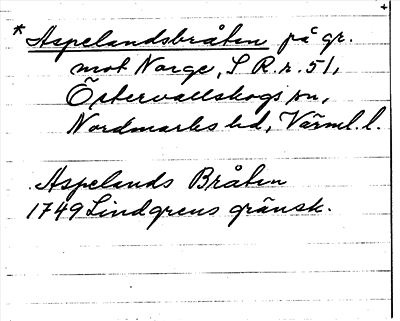 * Aspelandsbråten på gr.
mot Norge, S R.r. 51,
Östervallskogs sn,
Nordmarks hd, Värml. l.
Aspelands Bråten
1749 Lindgrens gränsk.